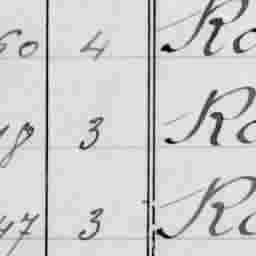 60 4 Ro
18 3 Ro
47 3 Ro